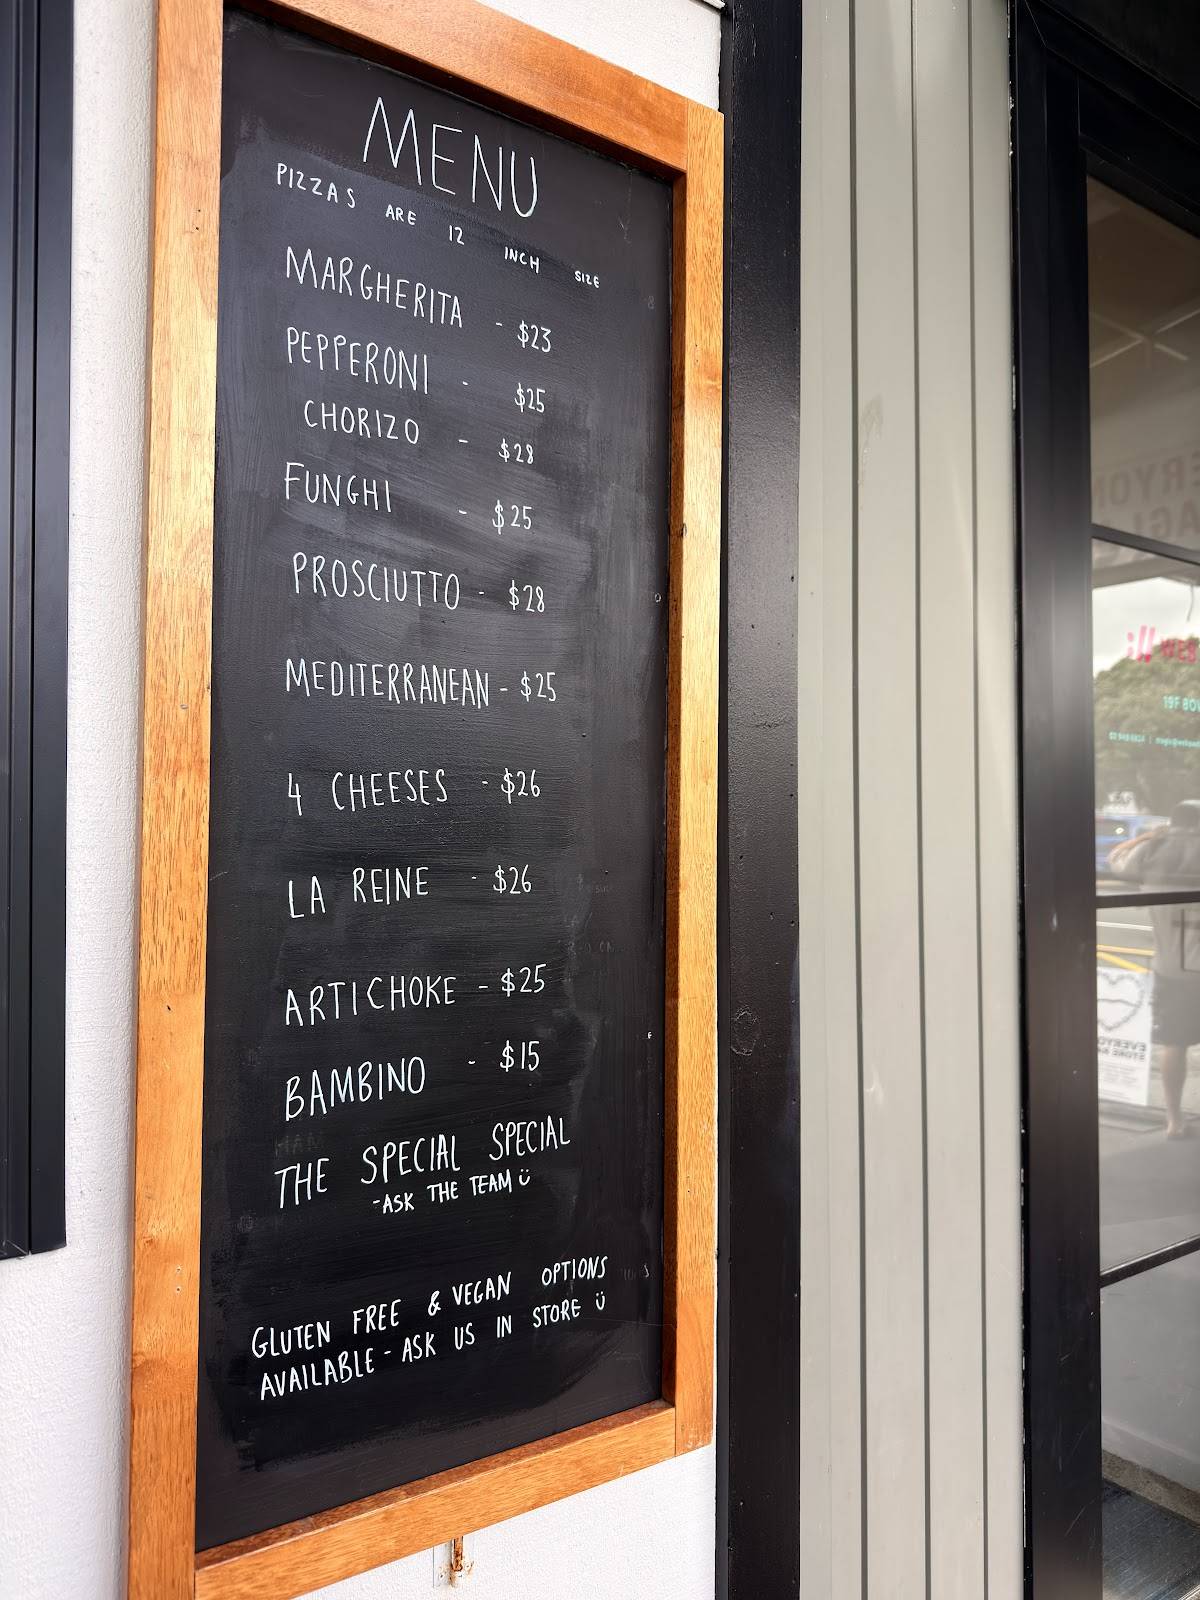 MENU
PIZZAS ARE 12 INCH SIZE
MARGHERITA - $23
PEPPERONI - $25
CHORIZO - $28
FUNGHI - $25
PROSCIUTTO - $28
MEDITERRANEAN - $25
4 CHEESES - $26
LA REINE - $26
ARTICHOKE - $25
BAMBINO - $15
THE SPECIAL SPECIAL
-ASK THE TEAM Ü
GLUTEN FREE & VEGAN OPTIONS
AVAILABLE - ASK US IN STORE Ü